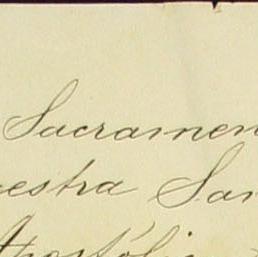 Sacramen
uestra San
Apostólic